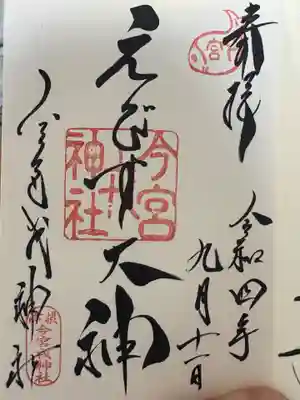 奉拝
令和四年
九月十一日
えびす大神
今宮戎神社
今宮戎神社
今宮戎神社